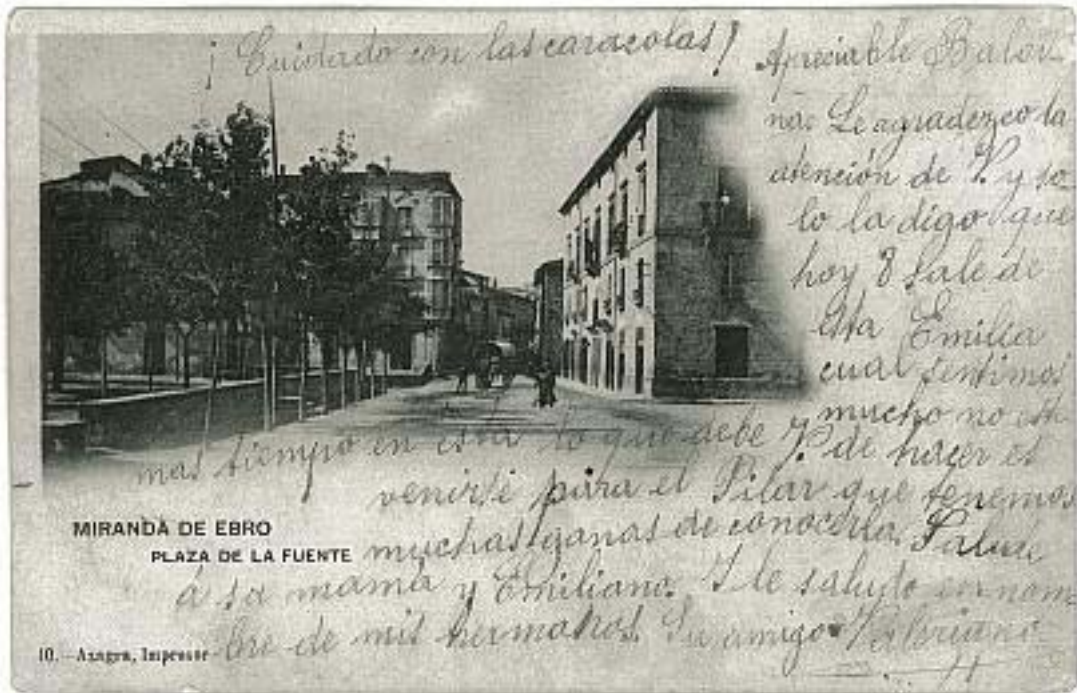 ¡ Cuidado con las caracolas !
Apreciable
na: Le agradezco la
atención de V. y so
lo la digo que
hoy 8 sale de
esta Emilia
cual sentimos
mucho no esté
mas tiempo en esta lo que debe V. de hacer es
venirse para el Pilar que tenemos
muchas ganas de conocerla. Salude
á su mamá y Emiliano. Y le saluda en nom
bre de mis hermanos. Su amigo Valeriano
MIRANDA DE EBRO
PLAZA DE LA FUENTE
10.—Azagra, Impresor